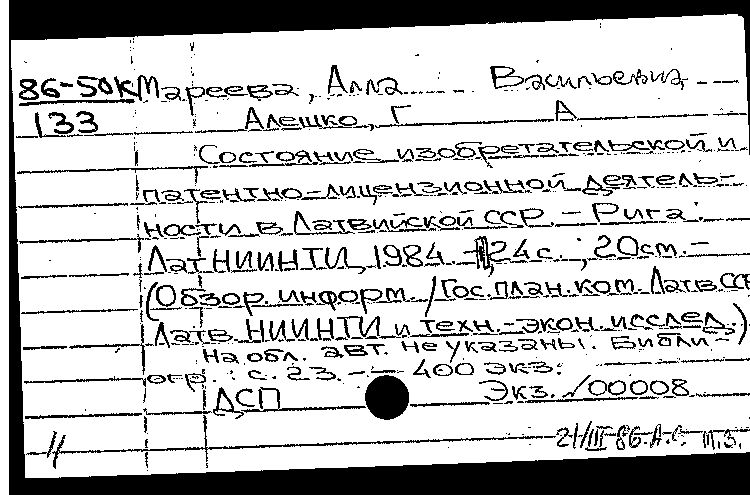 86-50К Мареева, Алла Васильевна
133 Алешко, Г А
Состояние изобретательской и
патентно-лицензионной деятель-
ности в Латвийской ССР. - Рига:
ЛатНИИНТИ, 1984. - 24 с.; 20 см. -
(Обзор. информ. / Гос. план. ком. Латв ССР
Латв. НИИНТИ и техн.-экон. исслед.)
На обл. авт. не указаны. Библи-
огр.: с. 23. - - 400 экз.
ДСП Экз. №00008
11
21/III-86 А.С. П.З.